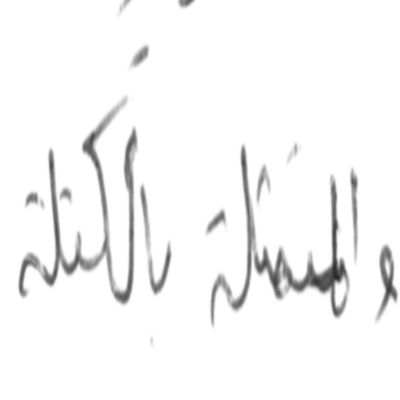 والممثلة بالكتلة